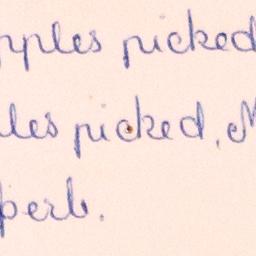 pples picked
les picked, M
perb.